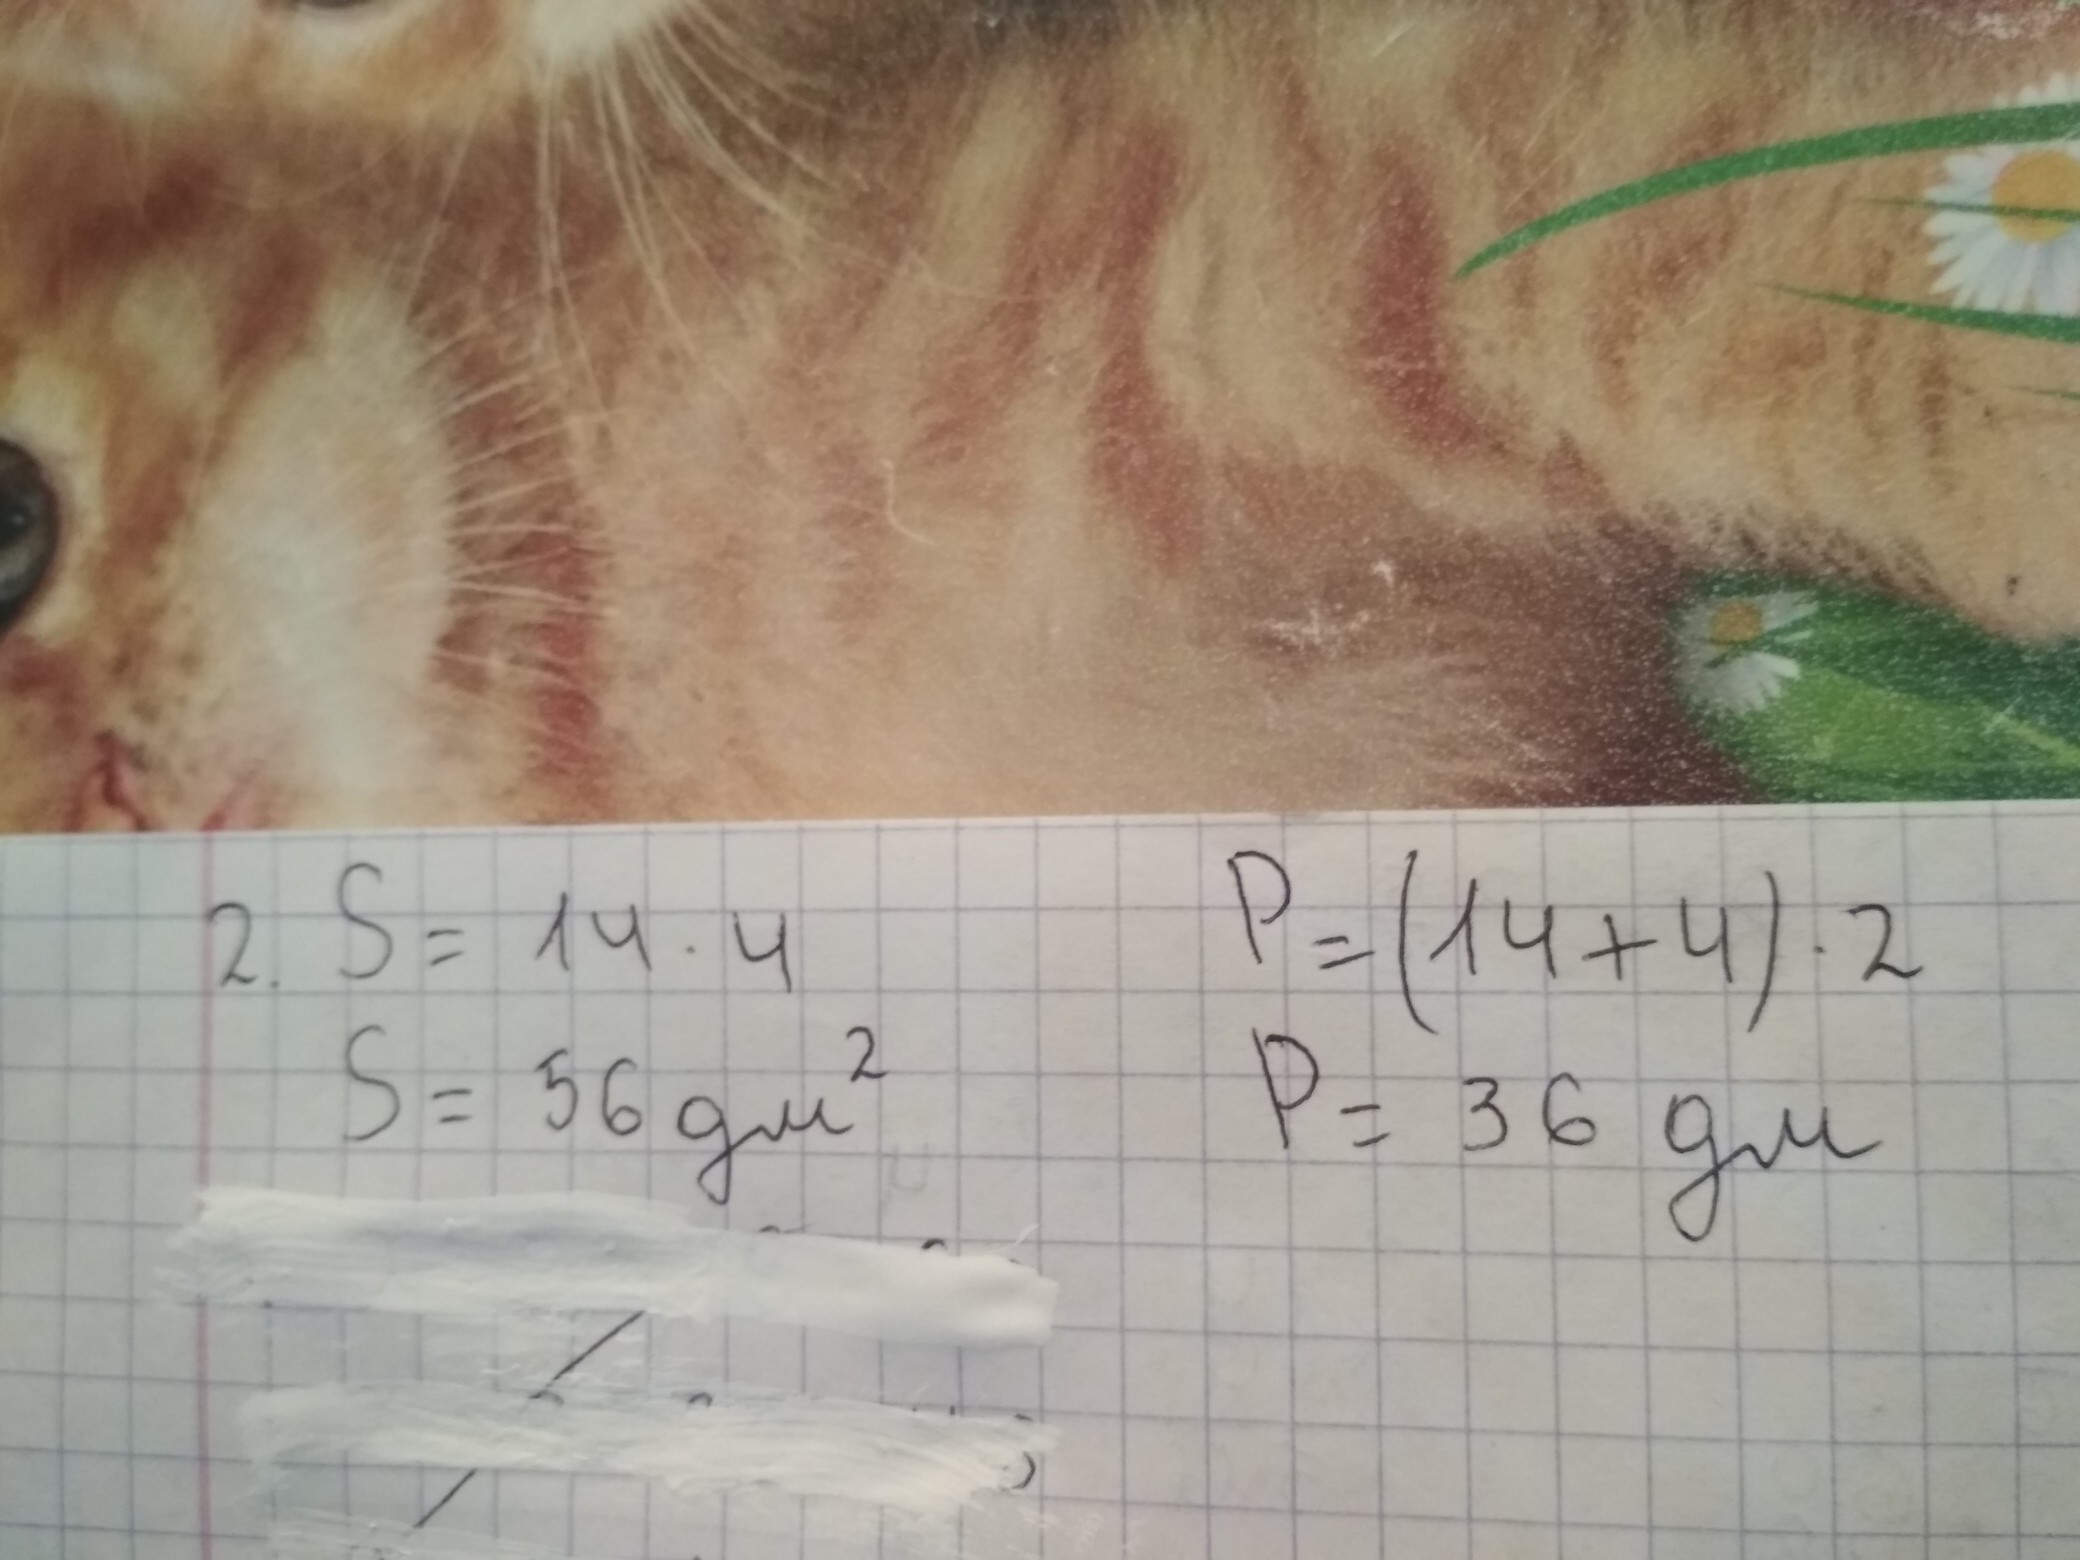 2. S = 14 · 4
S = 56 дм²
P = (14 + 4) · 2
P = 36 дм